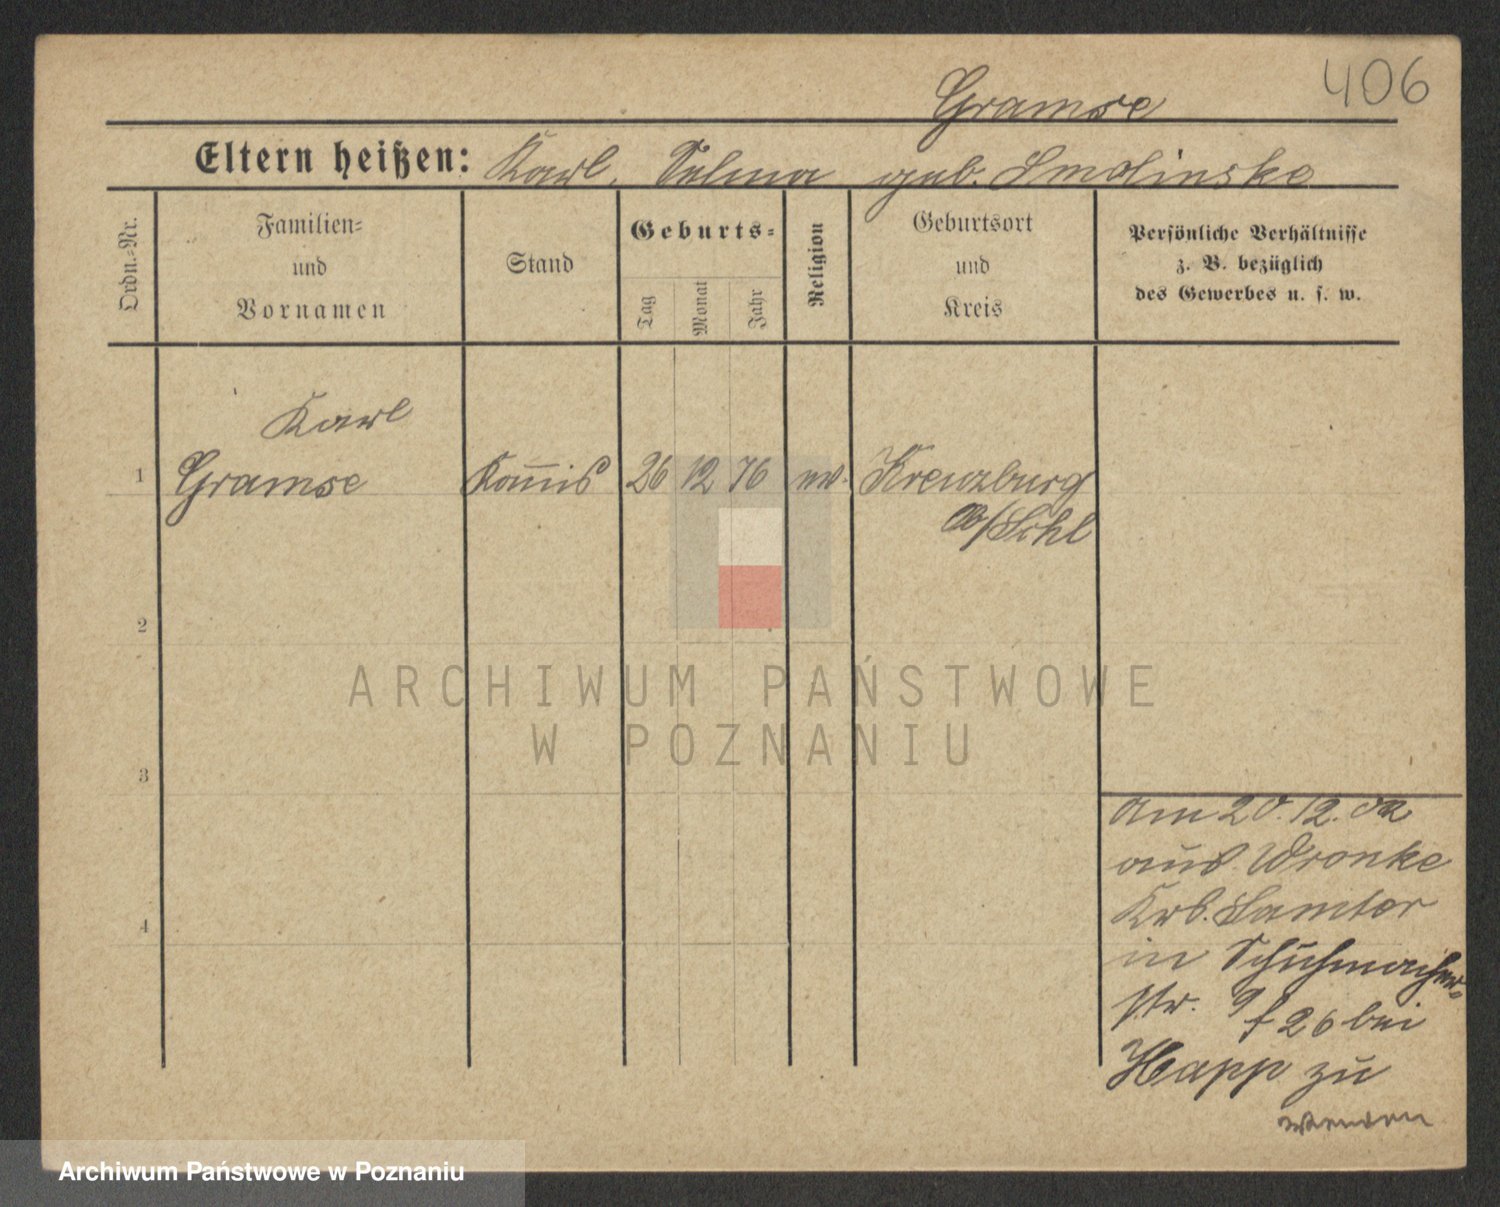 406
Gramse
Eltern heißen: Karl, Selma geb. Smolinske
Ordn.-Nr.
Familien-
und
Vornamen
Stand
Geburts-
Tag
Monat
Jahr
Religion
Geburtsort
und
Kreis
Persönliche Verhältnisse
z. B. bezüglich
des Gewerbes u. s. w.
Karl
1 Gramse Kom̅is 26 12 76 ev. Kreuzburg
Ob/Schl
2
3
4
Am 20. 12. 02
aus Wronke
Krs. Samter
in Schuhmacher-
str. 26 bei
Happ zu
wenden
ARCHIWUM PAŃSTWOWE
W POZNANIU
Archiwum Państwowe w Poznaniu